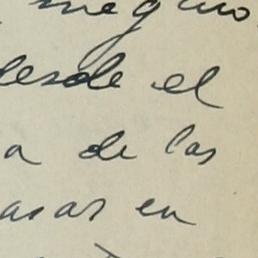 desde el
a de las
asas en